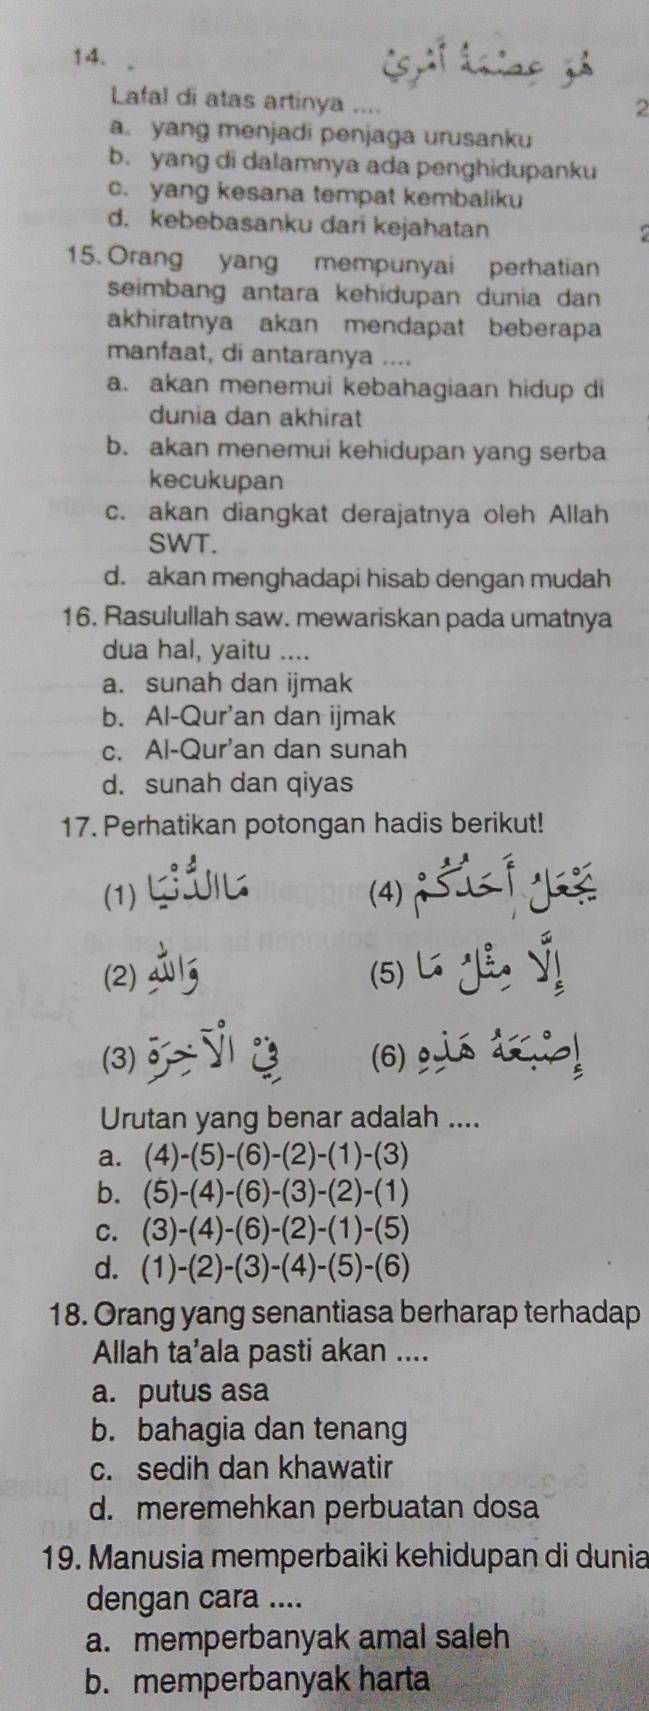 14. هُوَ عِصْمَةُ أَمْرِيْ
Lafal di atas artinya ....
a. yang menjadi penjaga urusanku
b. yang di dalamnya ada penghidupanku
c. yang kesana tempat kembaliku
d. kebebasanku dari kejahatan
15. Orang yang mempunyai perhatian
seimbang antara kehidupan dunia dan
akhiratnya akan mendapat beberapa
manfaat, di antaranya ....
a. akan menemui kebahagiaan hidup di
dunia dan akhirat
b. akan menemui kehidupan yang serba
kecukupan
c. akan diangkat derajatnya oleh Allah
SWT.
d. akan menghadapi hisab dengan mudah
16. Rasulullah saw. mewariskan pada umatnya
dua hal, yaitu ....
a. sunah dan ijmak
b. Al-Qur'an dan ijmak
c. Al-Qur'an dan sunah
d. sunah dan qiyas
17. Perhatikan potongan hadis berikut!
(1) مَاالدُّنْيَا (4) يَجْعَلُ أَحَدُكُمْ
(2) وَاللهِ (5) إِلَّا مِثْلُ مَا
(3) فِي الْآخِرَةِ (6) إِصْبَعَهُ هَذِهِ
Urutan yang benar adalah ....
a. (4)-(5)-(6)-(2)-(1)-(3)
b. (5)-(4)-(6)-(3)-(2)-(1)
c. (3)-(4)-(6)-(2)-(1)-(5)
d. (1)-(2)-(3)-(4)-(5)-(6)
18. Orang yang senantiasa berharap terhadap
Allah ta'ala pasti akan ....
a. putus asa
b. bahagia dan tenang
c. sedih dan khawatir
d. meremehkan perbuatan dosa
19. Manusia memperbaiki kehidupan di dunia
dengan cara ....
a. memperbanyak amal saleh
b. memperbanyak harta